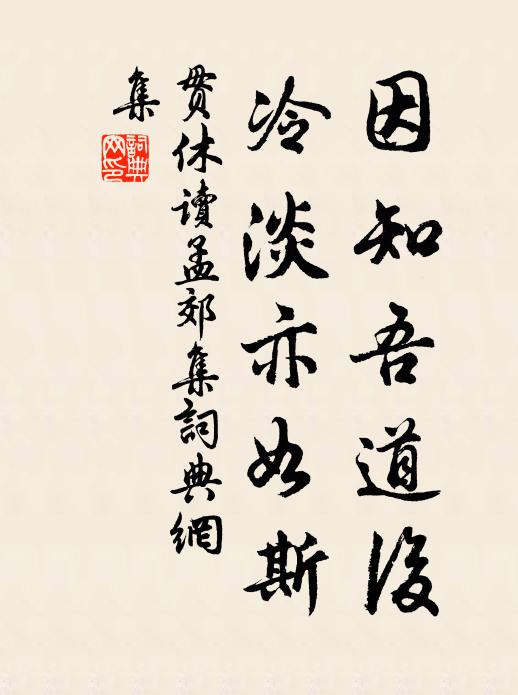 因知吾道後
冷淡亦如斯
貫休讀孟郊集詞典網
集
詞典
网印